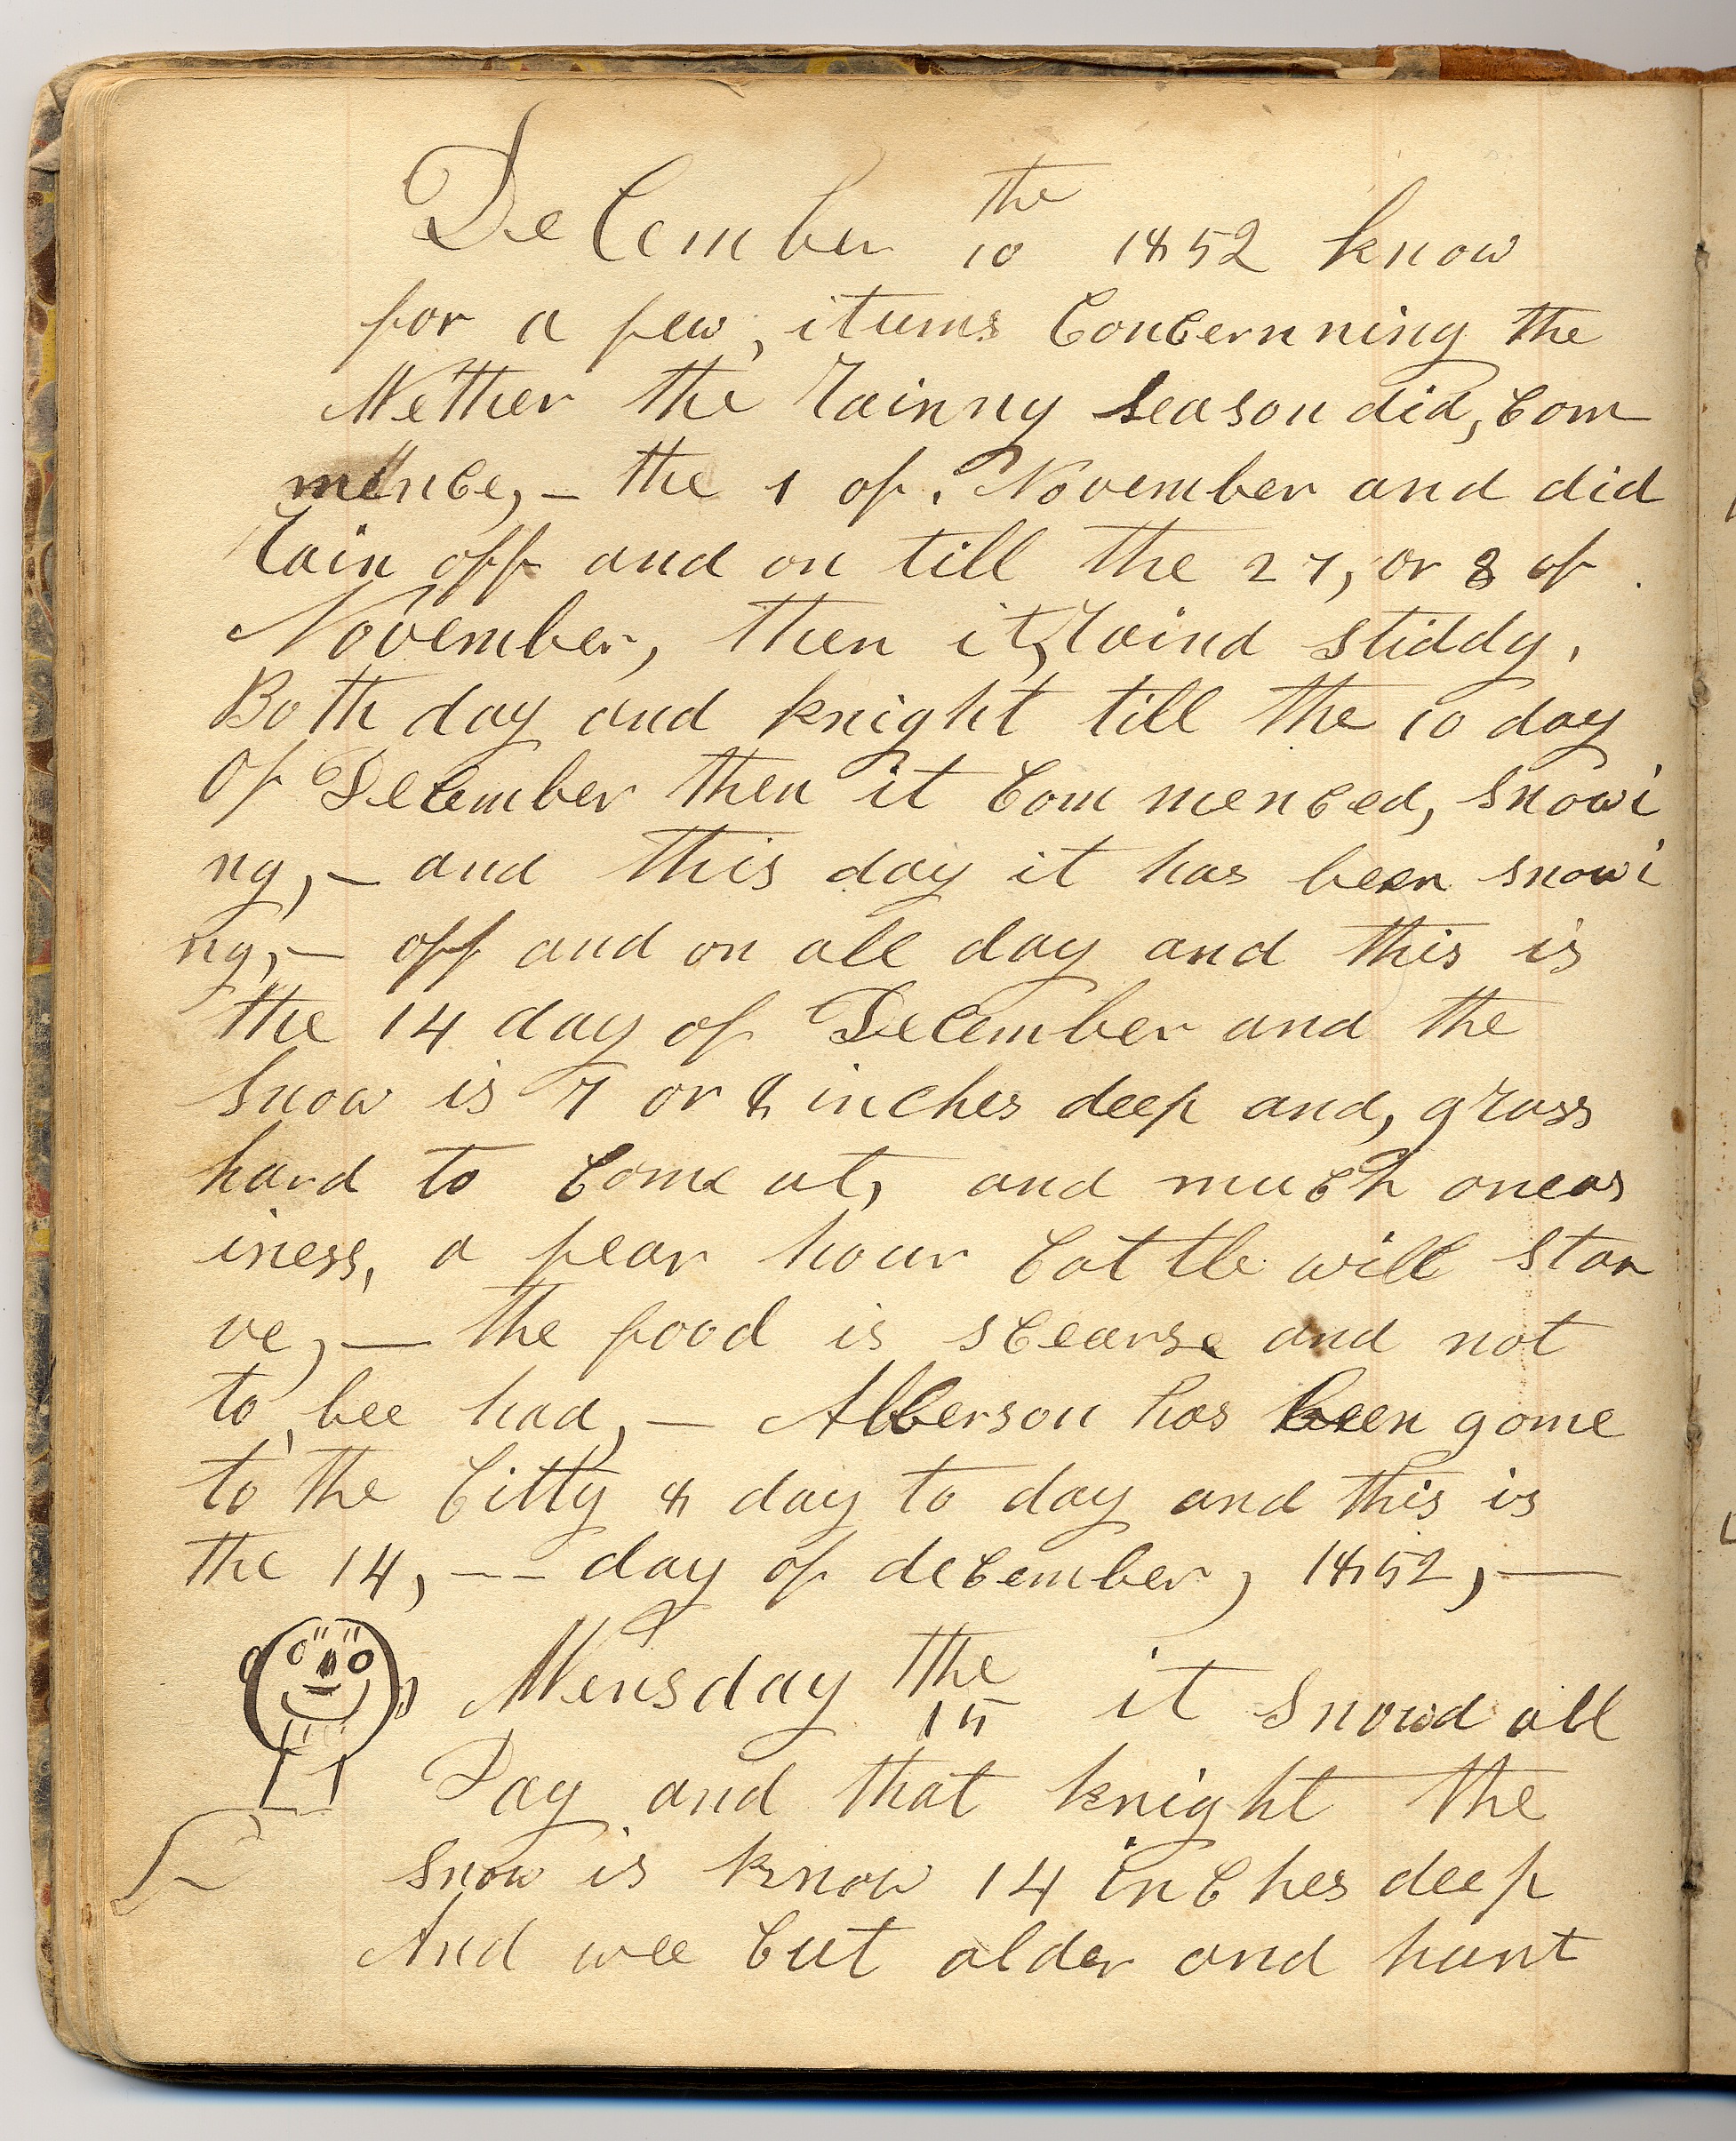 December 10 the 1852 know
for a few, itums Concernning the
Wether the rainny season did, com
mence, – the 1 of. November and did
rain off and on till the 27, or 8 of
November, then it, raind stiddy.
Both day and knight till the 10 day
Of December then it Commenced, snowi
ng, – and this day it has been snowi
ng, – off and on all day and this is
the 14 day of December and the
snow is 7 or 8 inches deep and, grass
hard to Come at, and much oneas
iness, a fear hour Cattle will star
ve, — the food is scearse and not
to, bee had, — Alberson has been gome
to the Citty 8 day to day and this is
the 14, – – – day of december, 1852, —
Wensday the 15 it snowd all
Day and that knight the
snow is know 14 inches deep
And wee Cut alder and hant